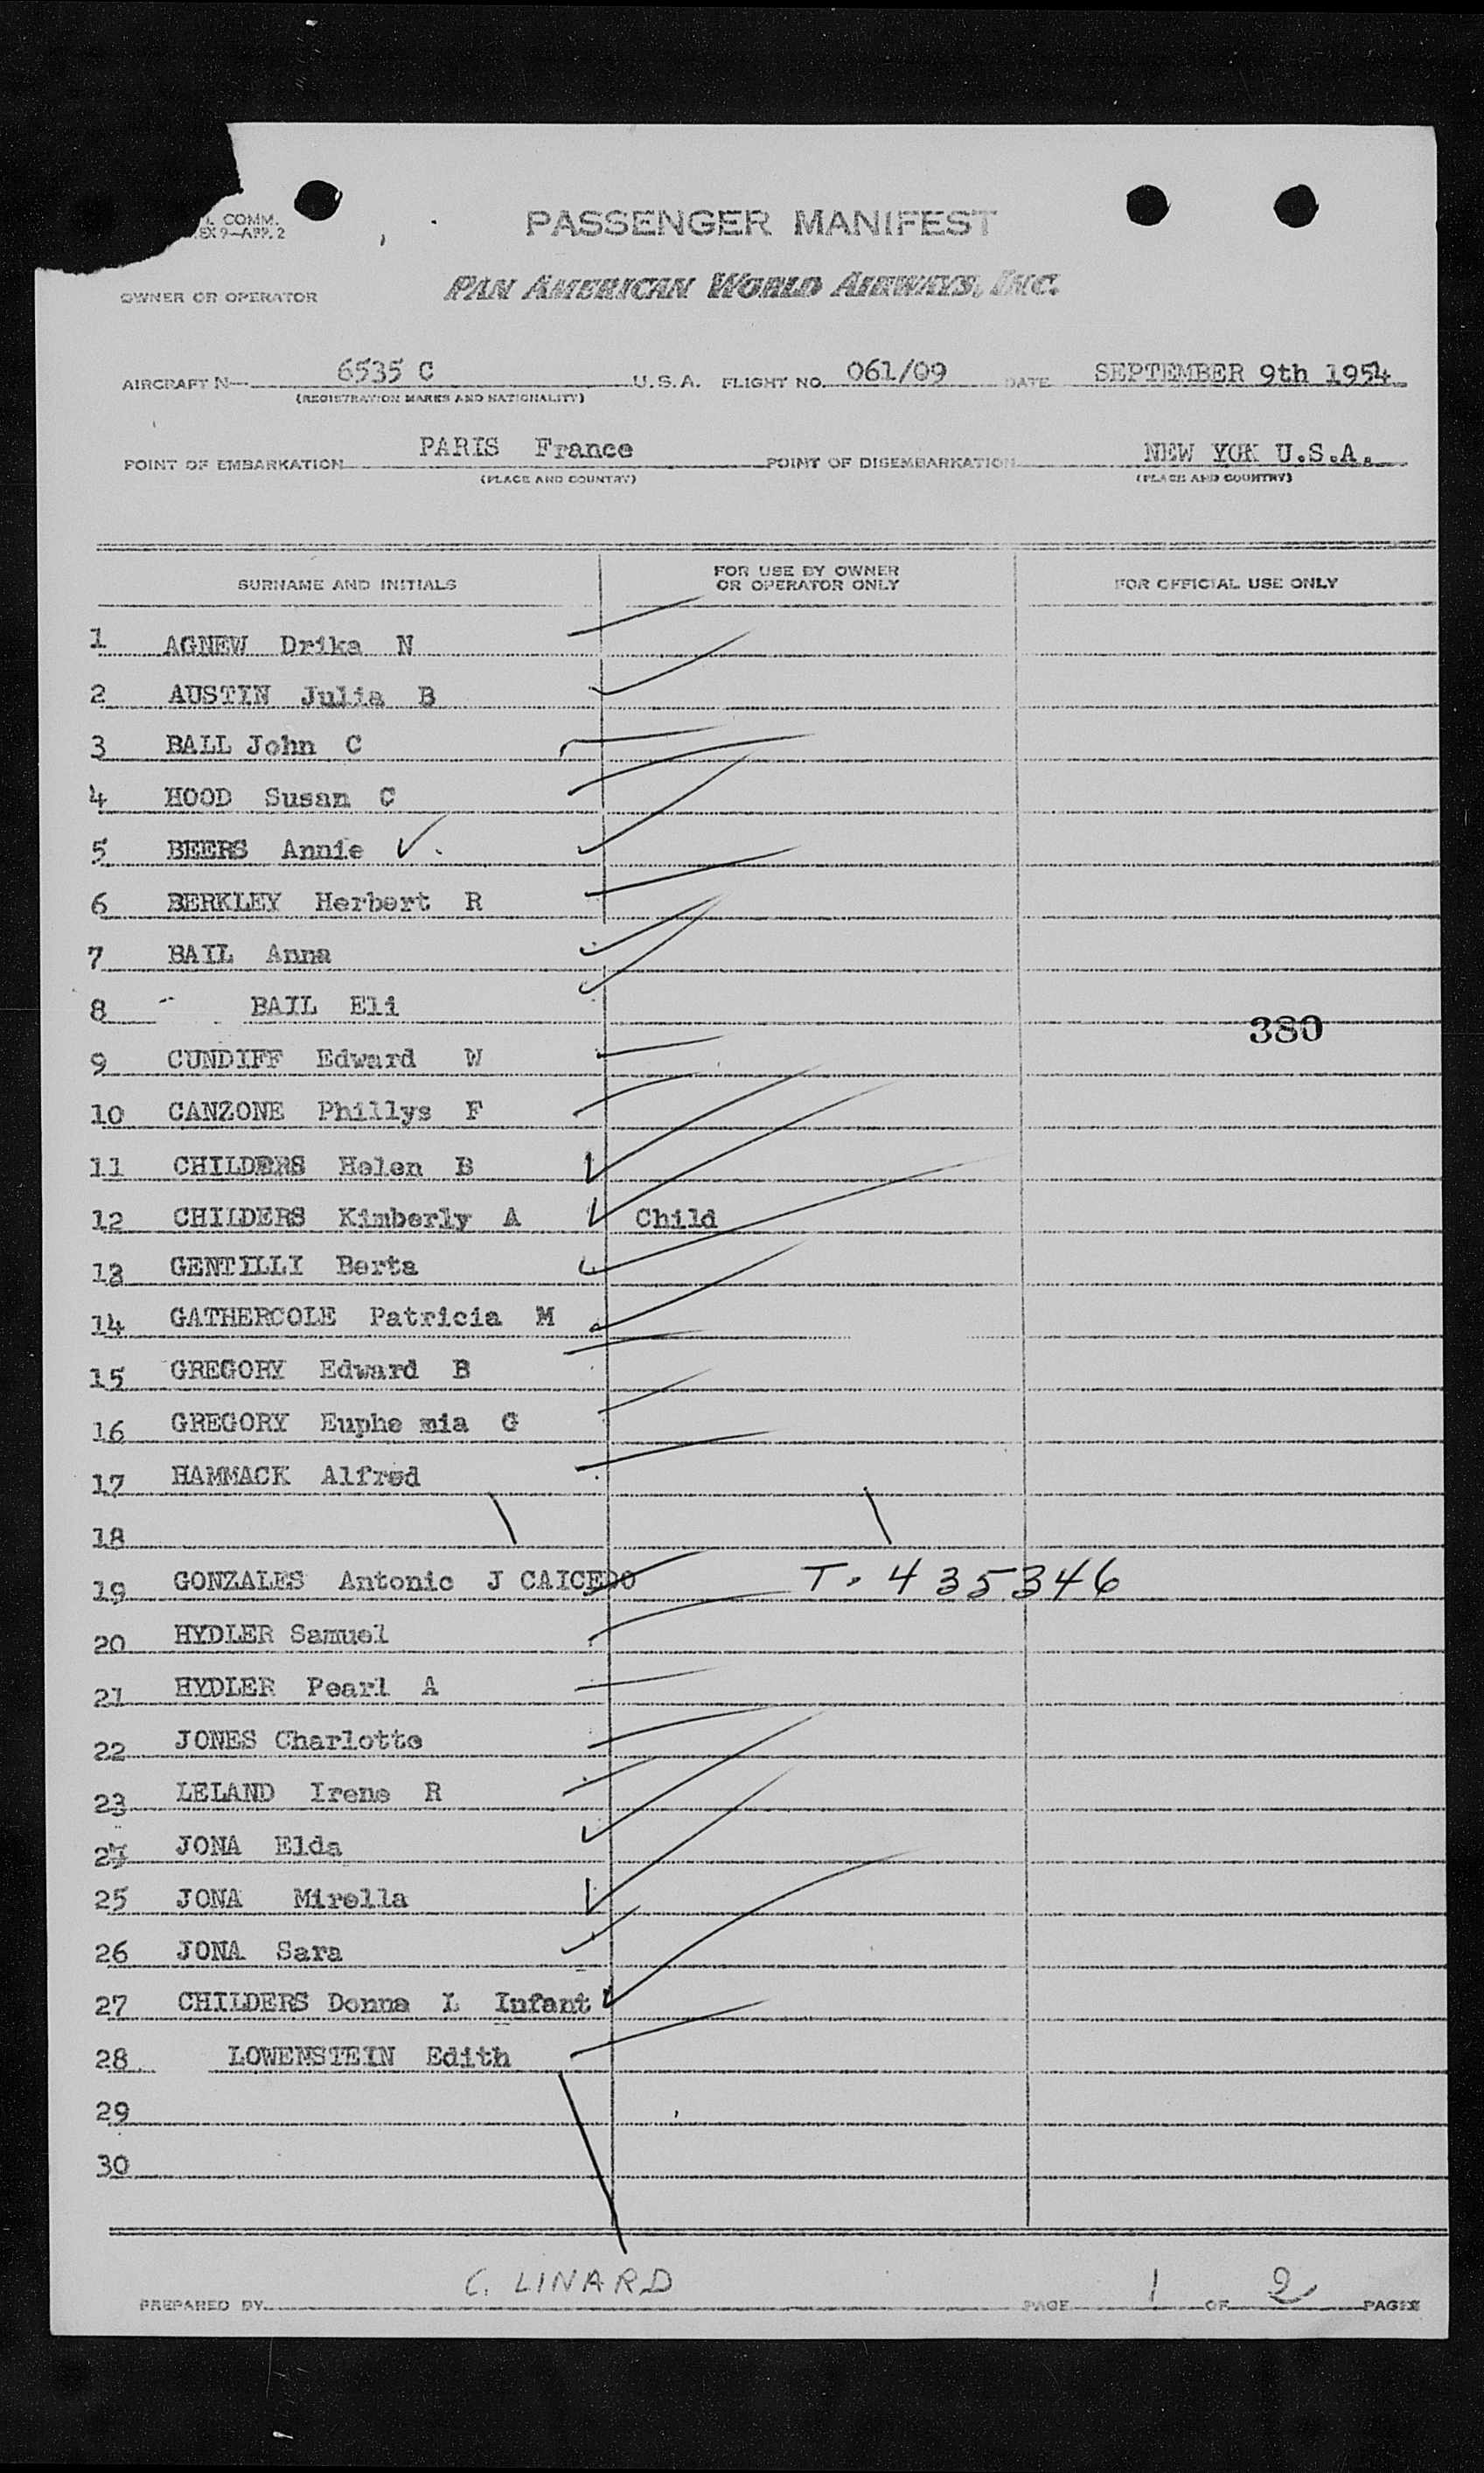 COMM.
EX 9—APP. 2
PASSENGER MANIFEST
OWNER OR OPERATOR
PAN AMERICAN WORLD AIRWAYS, INC.
AIRCRAFT N— 6535 C U.S.A. FLIGHT NO. 061/09 DATE SEPTEMBER 9th 1954
(REGISTRATION MARKS AND NATIONALITY)
POINT OF EMBARKATION PARIS France POINT OF DISEMBARKATION NEW YOK U.S.A.
(PLACE AND COUNTRY) (PLACE AND COUNTRY)
SURNAME AND INITIALS FOR USE BY OWNER OR OPERATOR ONLY FOR OFFICIAL USE ONLY
1 AGNEW Drika N
2 AUSTIN Julia B
3 BALL John C
4 HOOD Susan C
5 BEERS Annie
6 BERKLEY Herbert R
7 BAIL Anna
8 BAIL Eli
380
9 CUNDIFF Edward W
10 CANZONE Phillys F
11 CHILDERS Helen B
12 CHILDERS Kimberly A Child
13 GENTILLI Berta
14 GATHERCOLE Patricia M
15 GREGORY Edward B
16 GREGORY Euphe mia G
17 HAMMACK Alfred
18
19 GONZALES Antonio J CAICEDO T. 435346
20 HYDLER Samuel
21 HYDLER Pearl A
22 JONES Charlotte
23 LELAND Irene R
24 JONA Elda
25 JONA Mirella
26 JONA Sara
27 CHILDERS Donna L Infant
28 LOWENSTEIN Edith
29
30
PREPARED BY C. LINARD PAGE 1 OF 2 PAGES